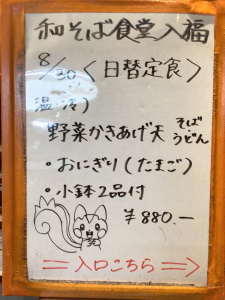 和そば食堂入福
8/30 <日替定食>
温 冷)
野菜かきあげ天 そば
うどん
・おにぎり(たまご)
・小鉢2品付
¥880.-
入口こちら